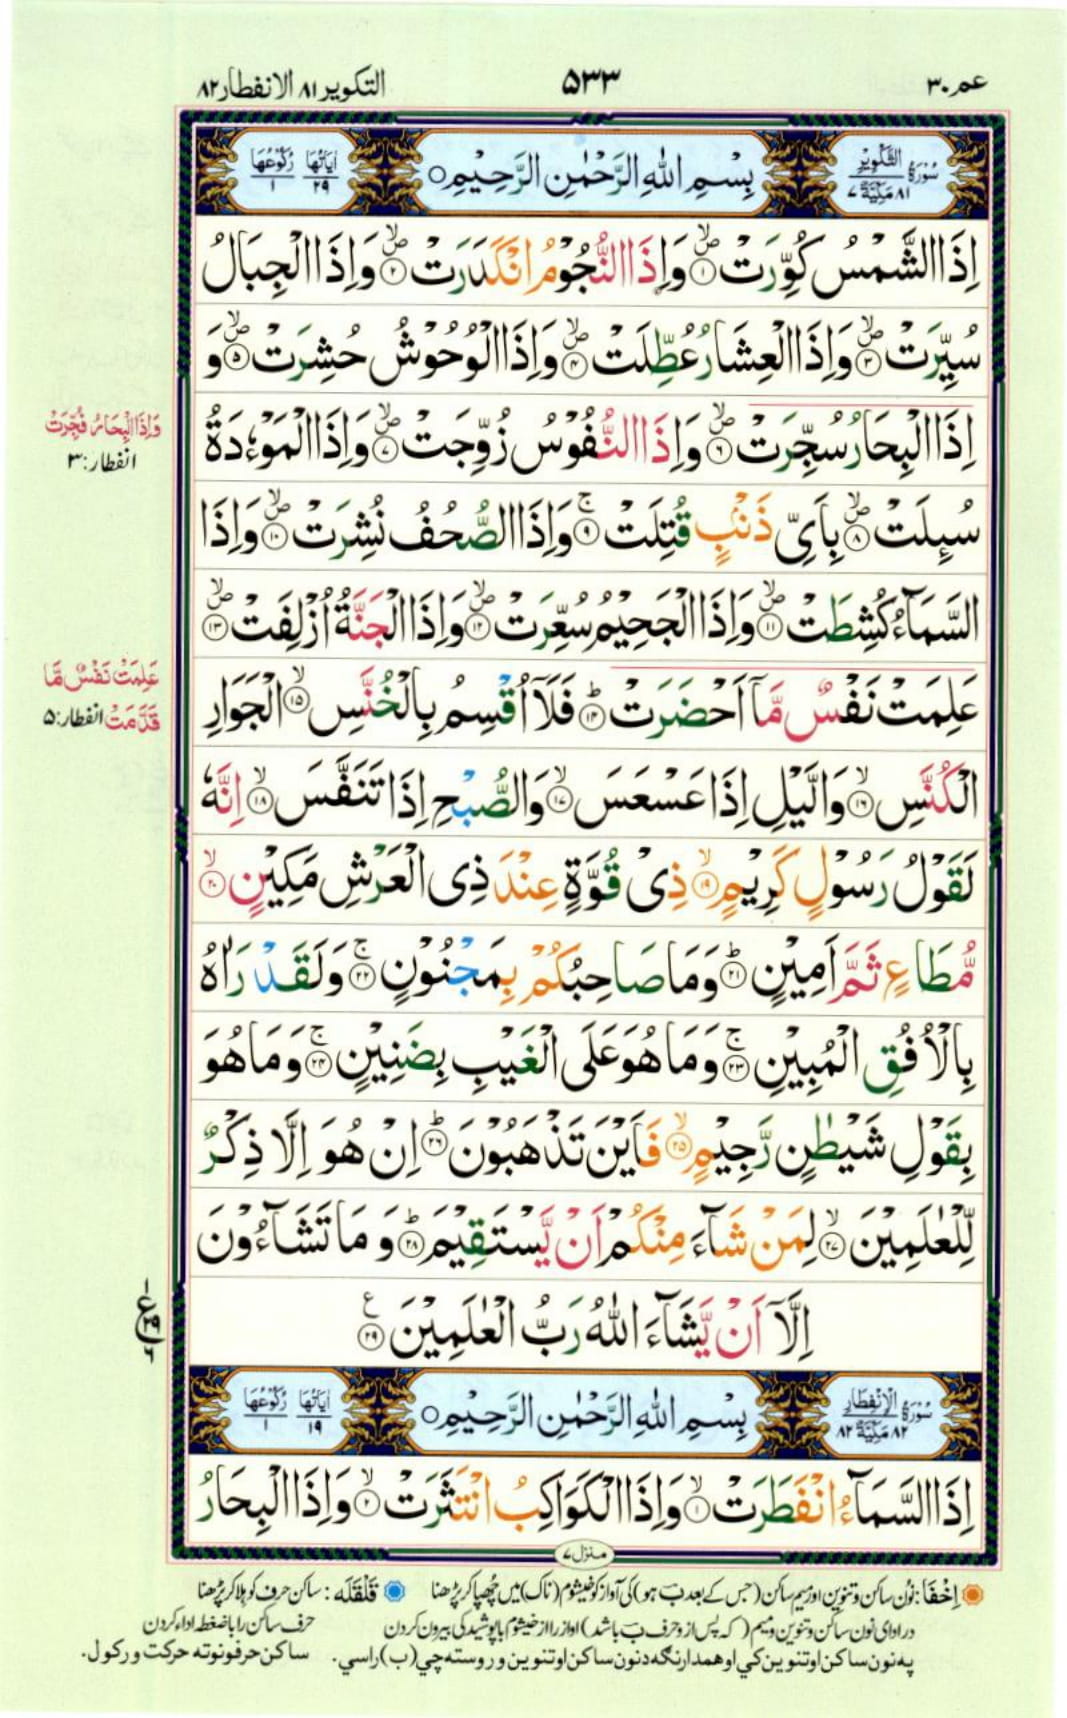 عم ٣٠
٥٣٣
التكوير ٨١ الانفطار ٨٢
سُوْرَةُ التَّكْوِيْرِ ٨١ مَكِّيَّةٌ ٧
بِسْمِ اللهِ الرَّحْمٰنِ الرَّحِيْمِ ○
اٰيَاتُهَا ٢٩ رُكُوْعُهَا ١
اِذَا الشَّمْسُ كُوِّرَتْ ۪ۙ ١ وَاِذَا النُّجُوْمُ انْكَدَرَتْ ۪ۙ ٢ وَاِذَا الْجِبَالُ
سُيِّرَتْ ۪ۙ ٣ وَاِذَا الْعِشَارُ عُطِّلَتْ ۪ۙ ٤ وَاِذَا الْوُحُوْشُ حُشِرَتْ ۪ۙ ٥ وَ
اِذَا الْبِحَارُ سُجِّرَتْ ۪ۙ ٦ وَاِذَا النُّفُوْسُ زُوِّجَتْ ۪ۙ ٧ وَاِذَا الْمَوْءٗدَةُ
وَاِذَا الْبِحَارُ فُجِّرَتْ
انفطار: ٣
سُىِٕلَتْ ۪ۙ ٨ بِاَىِّ ذَنْۢبٍ قُتِلَتْ ۚ ٩ وَاِذَا الصُّحُفُ نُشِرَتْ ۪ۙ ١٠ وَاِذَا
السَّمَآءُ كُشِطَتْ ۪ۙ ١١ وَاِذَا الْجَحِيْمُ سُعِّرَتْ ۪ۙ ١٢ وَاِذَا الْجَنَّةُ اُزْلِفَتْ ۪ۙ ١٣
عَلِمَتْ نَفْسٌ مَّآ اَحْضَرَتْ ؕ ١٤ فَلَآ اُقْسِمُ بِالْخُنَّسِ ۙ ١٥ الْجَوَارِ
عَلِمَتْ نَفْسٌ مَّا
قَدَّمَتْ انفطار: ٥
الْكُنَّسِ ۙ ١٦ وَالَّيْلِ اِذَا عَسْعَسَ ۙ ١٧ وَالصُّبْحِ اِذَا تَنَفَّسَ ۙ ١٨ اِنَّهٗ
لَقَوْلُ رَسُوْلٍ كَرِيْمٍ ۙ ١٩ ذِىْ قُوَّةٍ عِنْدَ ذِى الْعَرْشِ مَكِيْنٍ ۙ ٢٠
مُّطَاعٍ ثَمَّ اَمِيْنٍ ؕ ٢١ وَمَا صَاحِبُكُمْ بِمَجْنُوْنٍ ۚ ٢٢ وَلَقَدْ رَاٰهُ
بِالْاُفُقِ الْمُبِيْنِ ۚ ٢٣ وَمَا هُوَ عَلَى الْغَيْبِ بِضَنِيْنٍ ۚ ٢٤ وَمَا هُوَ
بِقَوْلِ شَيْطٰنٍ رَّجِيْمٍ ۙ ٢٥ فَاَيْنَ تَذْهَبُوْنَ ؕ ٢٦ اِنْ هُوَ اِلَّا ذِكْرٌ
لِّلْعٰلَمِيْنَ ۙ ٢٧ لِمَنْ شَآءَ مِنْكُمْ اَنْ يَّسْتَقِيْمَ ؕ ٢٨ وَ مَا تَشَآءُوْنَ
اِلَّآ اَنْ يَّشَآءَ اللهُ رَبُّ الْعٰلَمِيْنَ ع ٢٩
١ ع ٢٩ ٦
سُوْرَةُ الْاِنْفِطَارِ ٨٢ مَكِّيَّةٌ ٨٢
بِسْمِ اللهِ الرَّحْمٰنِ الرَّحِيْمِ ○
اٰيَاتُهَا ١٩ رُكُوْعُهَا ١
اِذَا السَّمَآءُ انْفَطَرَتْ ۙ ١ وَاِذَا الْكَوَاكِبُ انْتَثَرَتْ ۙ ٢ وَاِذَا الْبِحَارُ
منزل ٧
اِخْفَا: نُون ساکن و تنوین اور میم ساکن (جس کے بعد ب ہو) کی آواز کو خیشوم (ناک) میں چُھپا کر پڑھنا
قَلْقَلَه: ساکن حرف کو ہلا کر پڑھنا
در ادای نون ساکن و تنوین و میم (که پس از و حرف ب باشد) اواز را از خیشوم با پوشیدگی بیرون کردن
حرف ساکن را با ضغط اداء کردن
په نون ساکن او تنوین کي او همدارنګه د نون ساکن او تنوین وروسته چي (ب) راسي.
ساکن حرفونو ته حرکت ورکول.